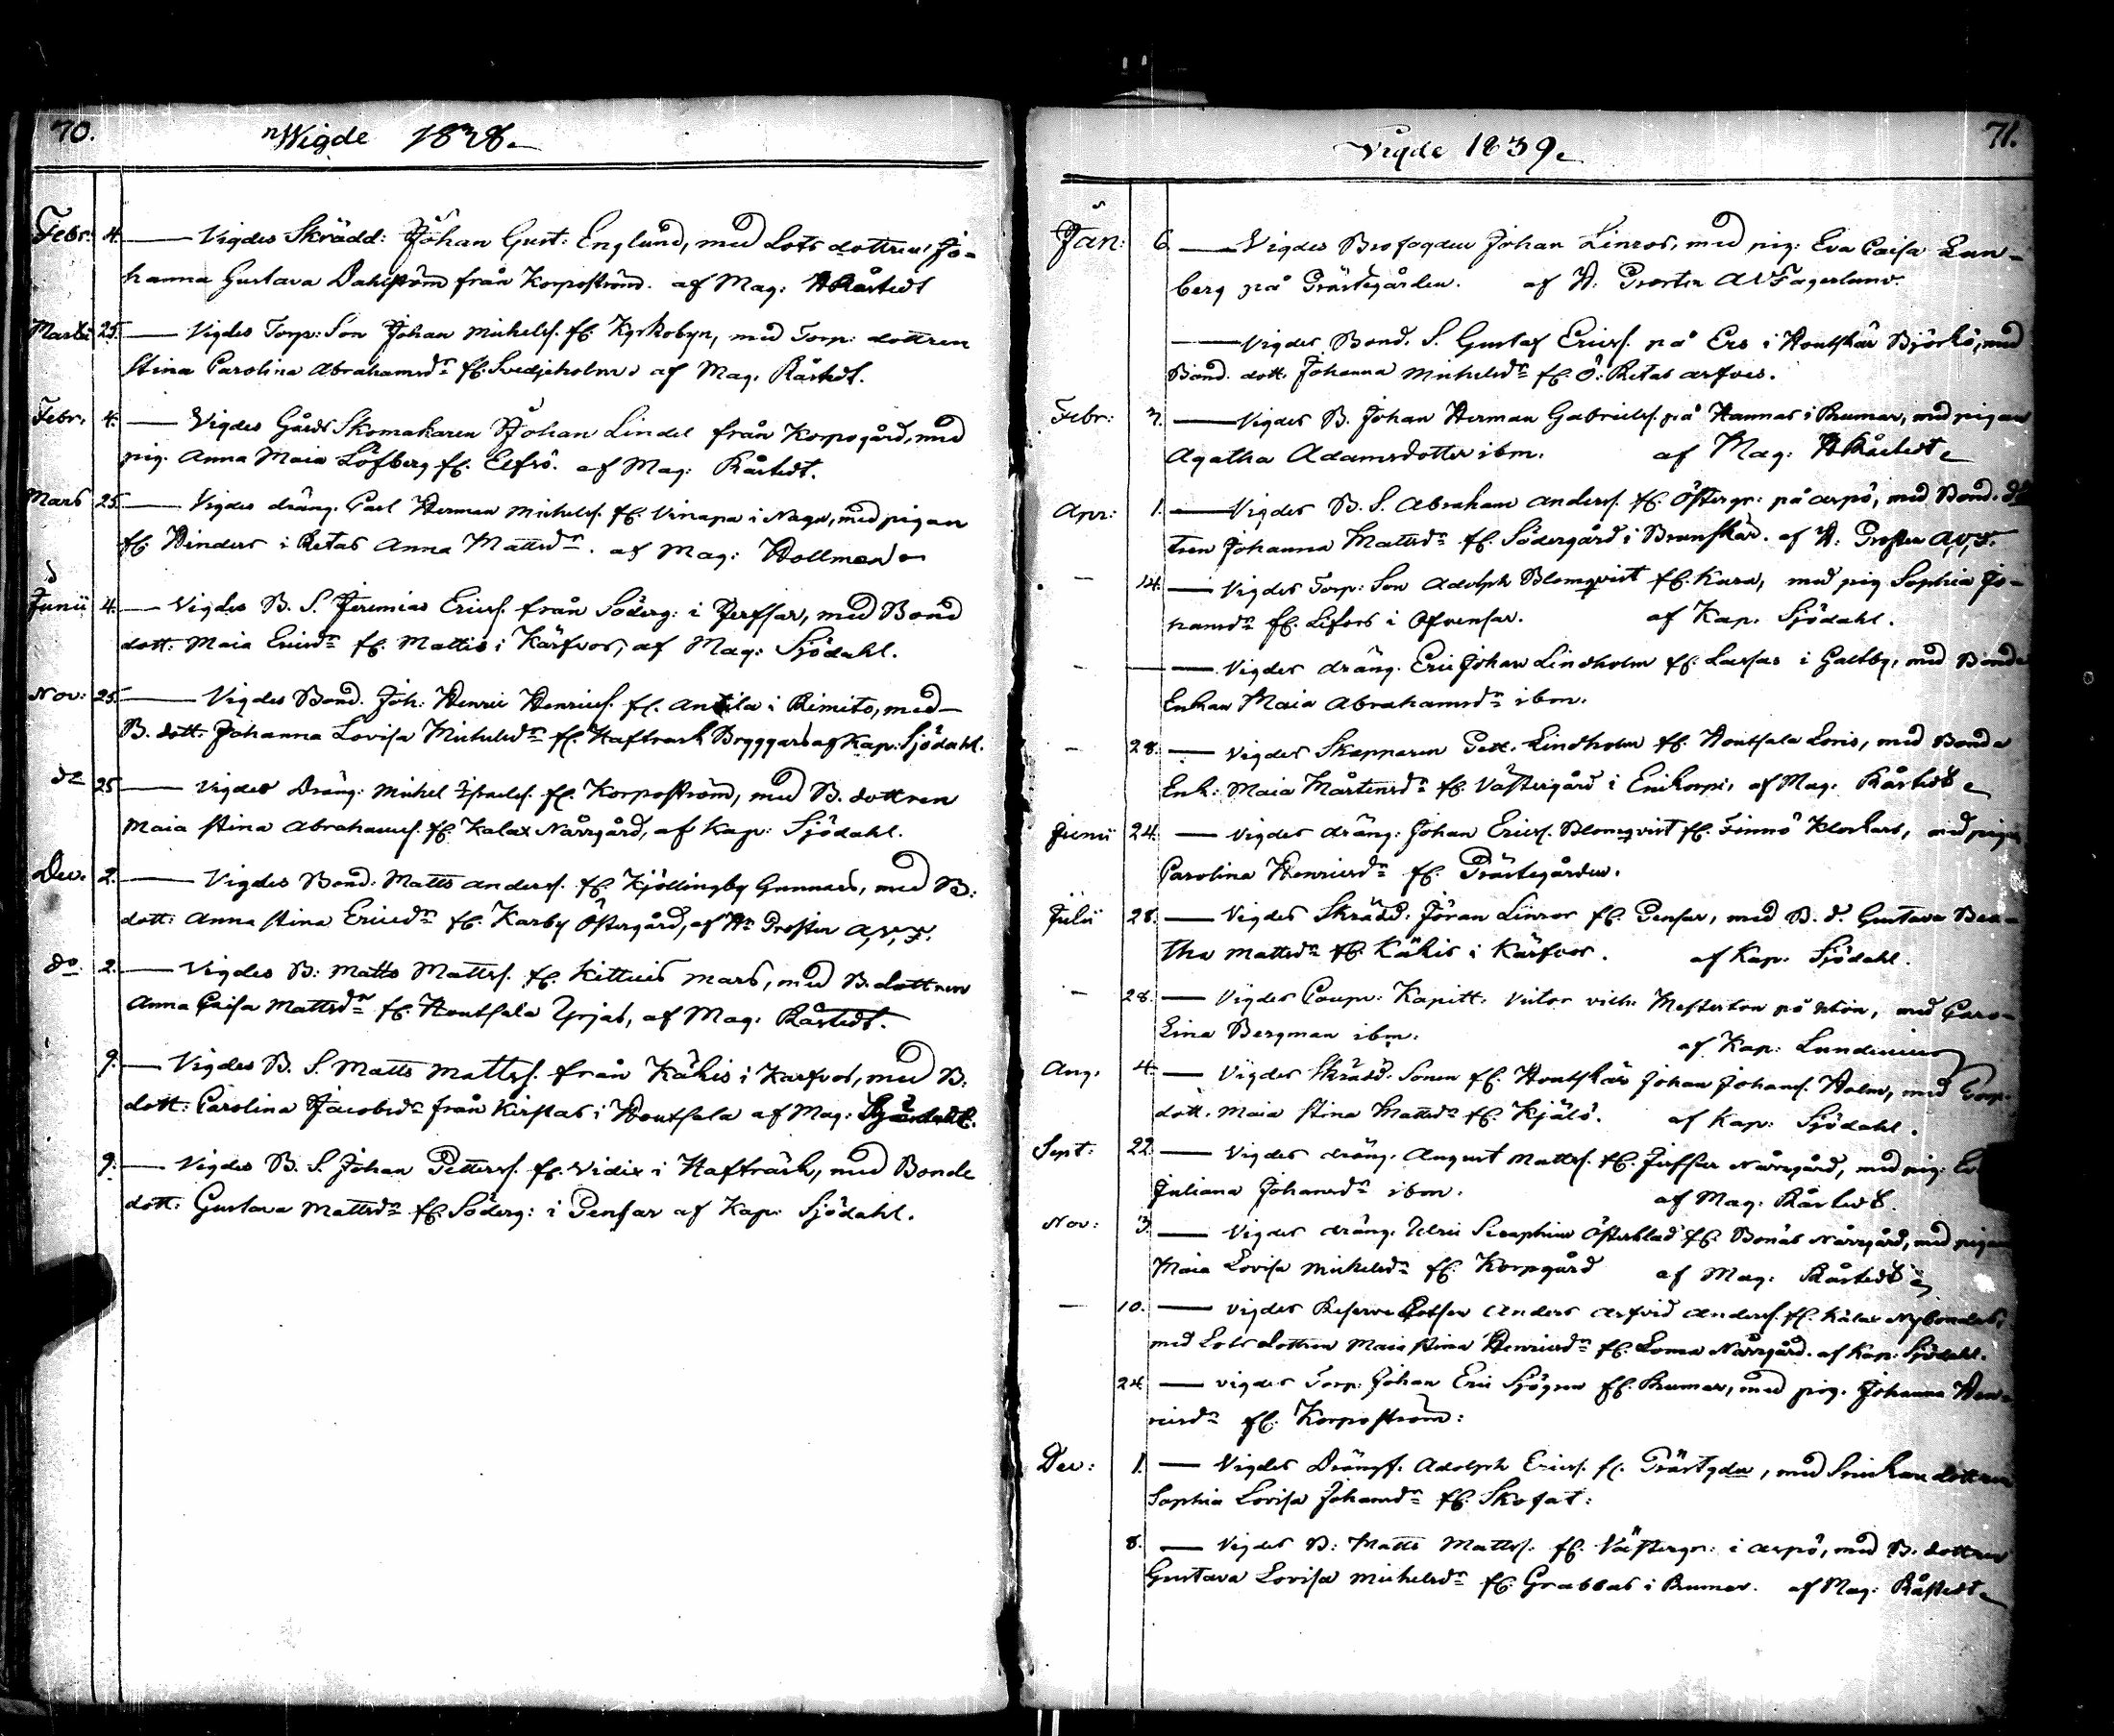 70.
Wigde 1838.
Febr: 4. Vigdes Skrädd: Johan Gust: Englund, med Lots dottren Jo-
hanna Gustava Dahlström från Korpoström. af Mag: Råstedt
Martii 25. Vigdes Torp: Son Johan Michelss. fr. Kyrkobyn, med Torp: dottren
Stina Carolina Abrahamsdr fr. Svedjeholm af Mag. Råstedt.
Febr. 4. Vigdes Gårds Skomakaren Johan Lindel från Korpogård, med
pig. Anna Maia Löfberg fr. Elfsö. af Mag: Råstedt.
Mars 25. Vigdes dräng. Carl Herman Michelss. fr. Vinapa i Nagu, med pigan
fr. Hinders i Retas Anna Mattsdr. af Mag: Hollmen
Junii 4. Vigdes B. S. Jeremias Ericss. från Söderg: i Jerfsar, med Bond
dott: Maia Ericsdr fr. Mattis i Kärfvos, af Mag: Sjödahl.
Nov: 25. Vigdes Bond. Joh: Henric Henricss. fr. Antila i Rimito, med
B. dott. Johanna Lovisa Michelsdr fr. Haftrask Bryggars af Kap: Sjödahl.
do 25 Vigdes Dräng: Michel Israelss. fr. Korpoström, med B. dottren
Maia Stina Abrahamss. fr. Kalax Norrgård, af Kap: Sjödahl.
Dec. 2. Vigdes Bond: Matts Anderss. fr. Kjöllingby Gunnars, med B:
dott: Anna Stina Ericsdr fr. Karby Östergård, af Hr Prosten A,V,F.
do 2. Vigdes B: Matts Mattss. fr. Kittuis Mars, med B. dottren
Anna Caisa Mattsdr fr. Houtsala Yrjas, af Mag: Råstedt.
9. Vigdes B. S. Matts Mattss. från Kähis i Karfvos, med B.
dott: Carolina Jacobsdr från Kirstas i Houtsala af Mag:
9. Vigdes B. S. Johan Petterss. fr. Vidix i Hafträsk, med Bonde
dott: Gustava Mattsdr fr. Söderg: i Pensar af Kap: Sjödahl.
71.
Vigde 1839.
Jan: 6. Vigdes Brofogden Johan Linros, med pig: Eva Caisa Lun-
berg på Prästegården. af H: Prosten AVFagerlund.
Vigdes Bond. S. Gustaf Ericss. på Ers i Houtskär Björkö, med
Bond. dott. Johanna Michelsdr fr. Ö: Retas arfves.
Febr: 3. Vigdes B. Johan Herman Gabrielss. på Hannas i Rumar, med pigan
Agatha Adamsdotter ibm. af Mag: Råstedt
Apr: 1. Vigdes B. S. Abraham Anderss. fr. Östergr: på Aspö, med Bond. dot
tren Johanna Mattsdr fr. Södergård i Brunskär. af H: Prosten A,V,F.
— 14. Vigdes Torp: Son Adolph Blomqvist fr. Kara, med pig Sophia Jo-
hansdr fr. Lefors i Ofvensar. af Kap. Sjödahl.
— Vigdes dräng. Eric Johan Lindholm fr. Larsas i Galtby, med Bonde
Enkan Maia Abrahamsdr ibm.
— 28. Vigdes Skepparen Pett. Lindholm fr. Houtsala Loris, med Bonde
Enk: Maia Mårtensdr fr. Västergård i Enikorpi, af Mag. Råstedt
Junii 24. Vigdes dräng: Johan Ericss. Blomqvist fr. Finnö Klockars, med pigan
Carolina Henricsdr fr. Prästegården.
Julii 28. Vigdes Skrädd. Jöran Linros fr. Pensar, med B. d. Gustava Bea-
tha Mattsdr fr. Kähis i Kärfvos. af Kap. Sjödahl.
— 28. Vigdes Coupv: Kapitt: Victor Vilh: Mesterton på Utön, med Caro-
Lina Bergman ibm. af Kap: Lundenius
Aug. 4. Vigdes Skrädd. Sonen fr. Houtskär Johan Johanss. Holm, med Torp.
dott. Maia Stina Mattsdr fr. Kjälö. af Kap: Sjödahl.
Sept: 22. Vigdes dräng. August Mattss. fr. Jerfsar Norrgård, med pig:
Juliana Johansdr ibm. af Mag: Råstedt.
Nov: 3. Vigdes dräng. Ulric Seraphim Österblad fr. Bonäs Norrgård, med pigan
Maia Lovisa Michelsdr fr. Korpogård af Mag: Råstedt
— 10. Vigdes Reserve Lotsen Anders Arfvid Anderss. fr. Kalax Nybondas,
med Lots dottren Maia Stina Henricsdr fr. Loma Norrgård. af Kap: Sjödahl.
24. Vigdes Torp: Johan Eric Sjögren fr. Rumar, med pig. Johanna Hen-
ricsdr fr. Korpoström:
Dec: 1. Vigdes Drängs. Adolph Ericss. fr. Prästgdn, med dottren
Sophia Lovisa Johansdr fr. Skofat:
8. Vigdes B: Matts Mattss. fr. Västergr: i Aspö, med B. dottren
Gustava Lovisa Michelsdr fr. Grabbas i Rumar. af Mag: Råstedt